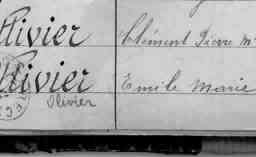 Olivier Clément Pierre M
Olivier Emile Marie
Olivier